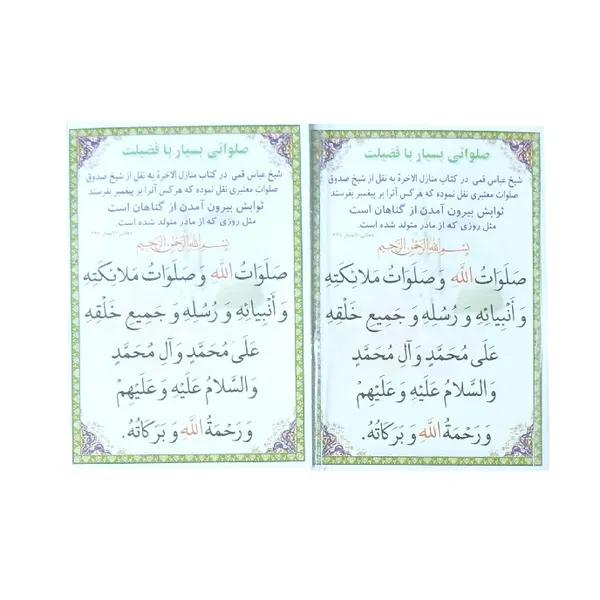 صلواتی بسیار با فضیلت
شیخ عباس قمی در کتاب منازل الاخرة به نقل از شیخ صدوق
صلوات معتبری نقل نموده که هرکس آنرا بر پیغمبر بفرستد
ثوابش بیرون آمدن از گناهان است
مثل روزی که از مادر متولد شده است.
بِسْمِ اللهِ الرَّحْمٰنِ الرَّحِیمِ
صَلَوَاتُ اللَّهِ وَ صَلَوَاتُ مَلَائِکَتِهِ
وَ أَنْبِیَائِهِ وَ رُسُلِهِ وَ جَمِیعِ خَلْقِهِ
عَلَی مُحَمَّدٍ وَ آلِ مُحَمَّدٍ
وَ السَّلَامُ عَلَیْهِ وَ عَلَیْهِمْ
وَ رَحْمَةُ اللَّهِ وَ بَرَکَاتُهُ.
صلواتی بسیار با فضیلت
شیخ عباس قمی در کتاب منازل الاخرة به نقل از شیخ صدوق
صلوات معتبری نقل نموده که هرکس آنرا بر پیغمبر بفرستد
ثوابش بیرون آمدن از گناهان است
مثل روزی که از مادر متولد شده است.
بِسْمِ اللهِ الرَّحْمٰنِ الرَّحِیمِ
صَلَوَاتُ اللَّهِ وَ صَلَوَاتُ مَلَائِکَتِهِ
وَ أَنْبِیَائِهِ وَ رُسُلِهِ وَ جَمِیعِ خَلْقِهِ
عَلَی مُحَمَّدٍ وَ آلِ مُحَمَّدٍ
وَ السَّلَامُ عَلَیْهِ وَ عَلَیْهِمْ
وَ رَحْمَةُ اللَّهِ وَ بَرَکَاتُهُ.